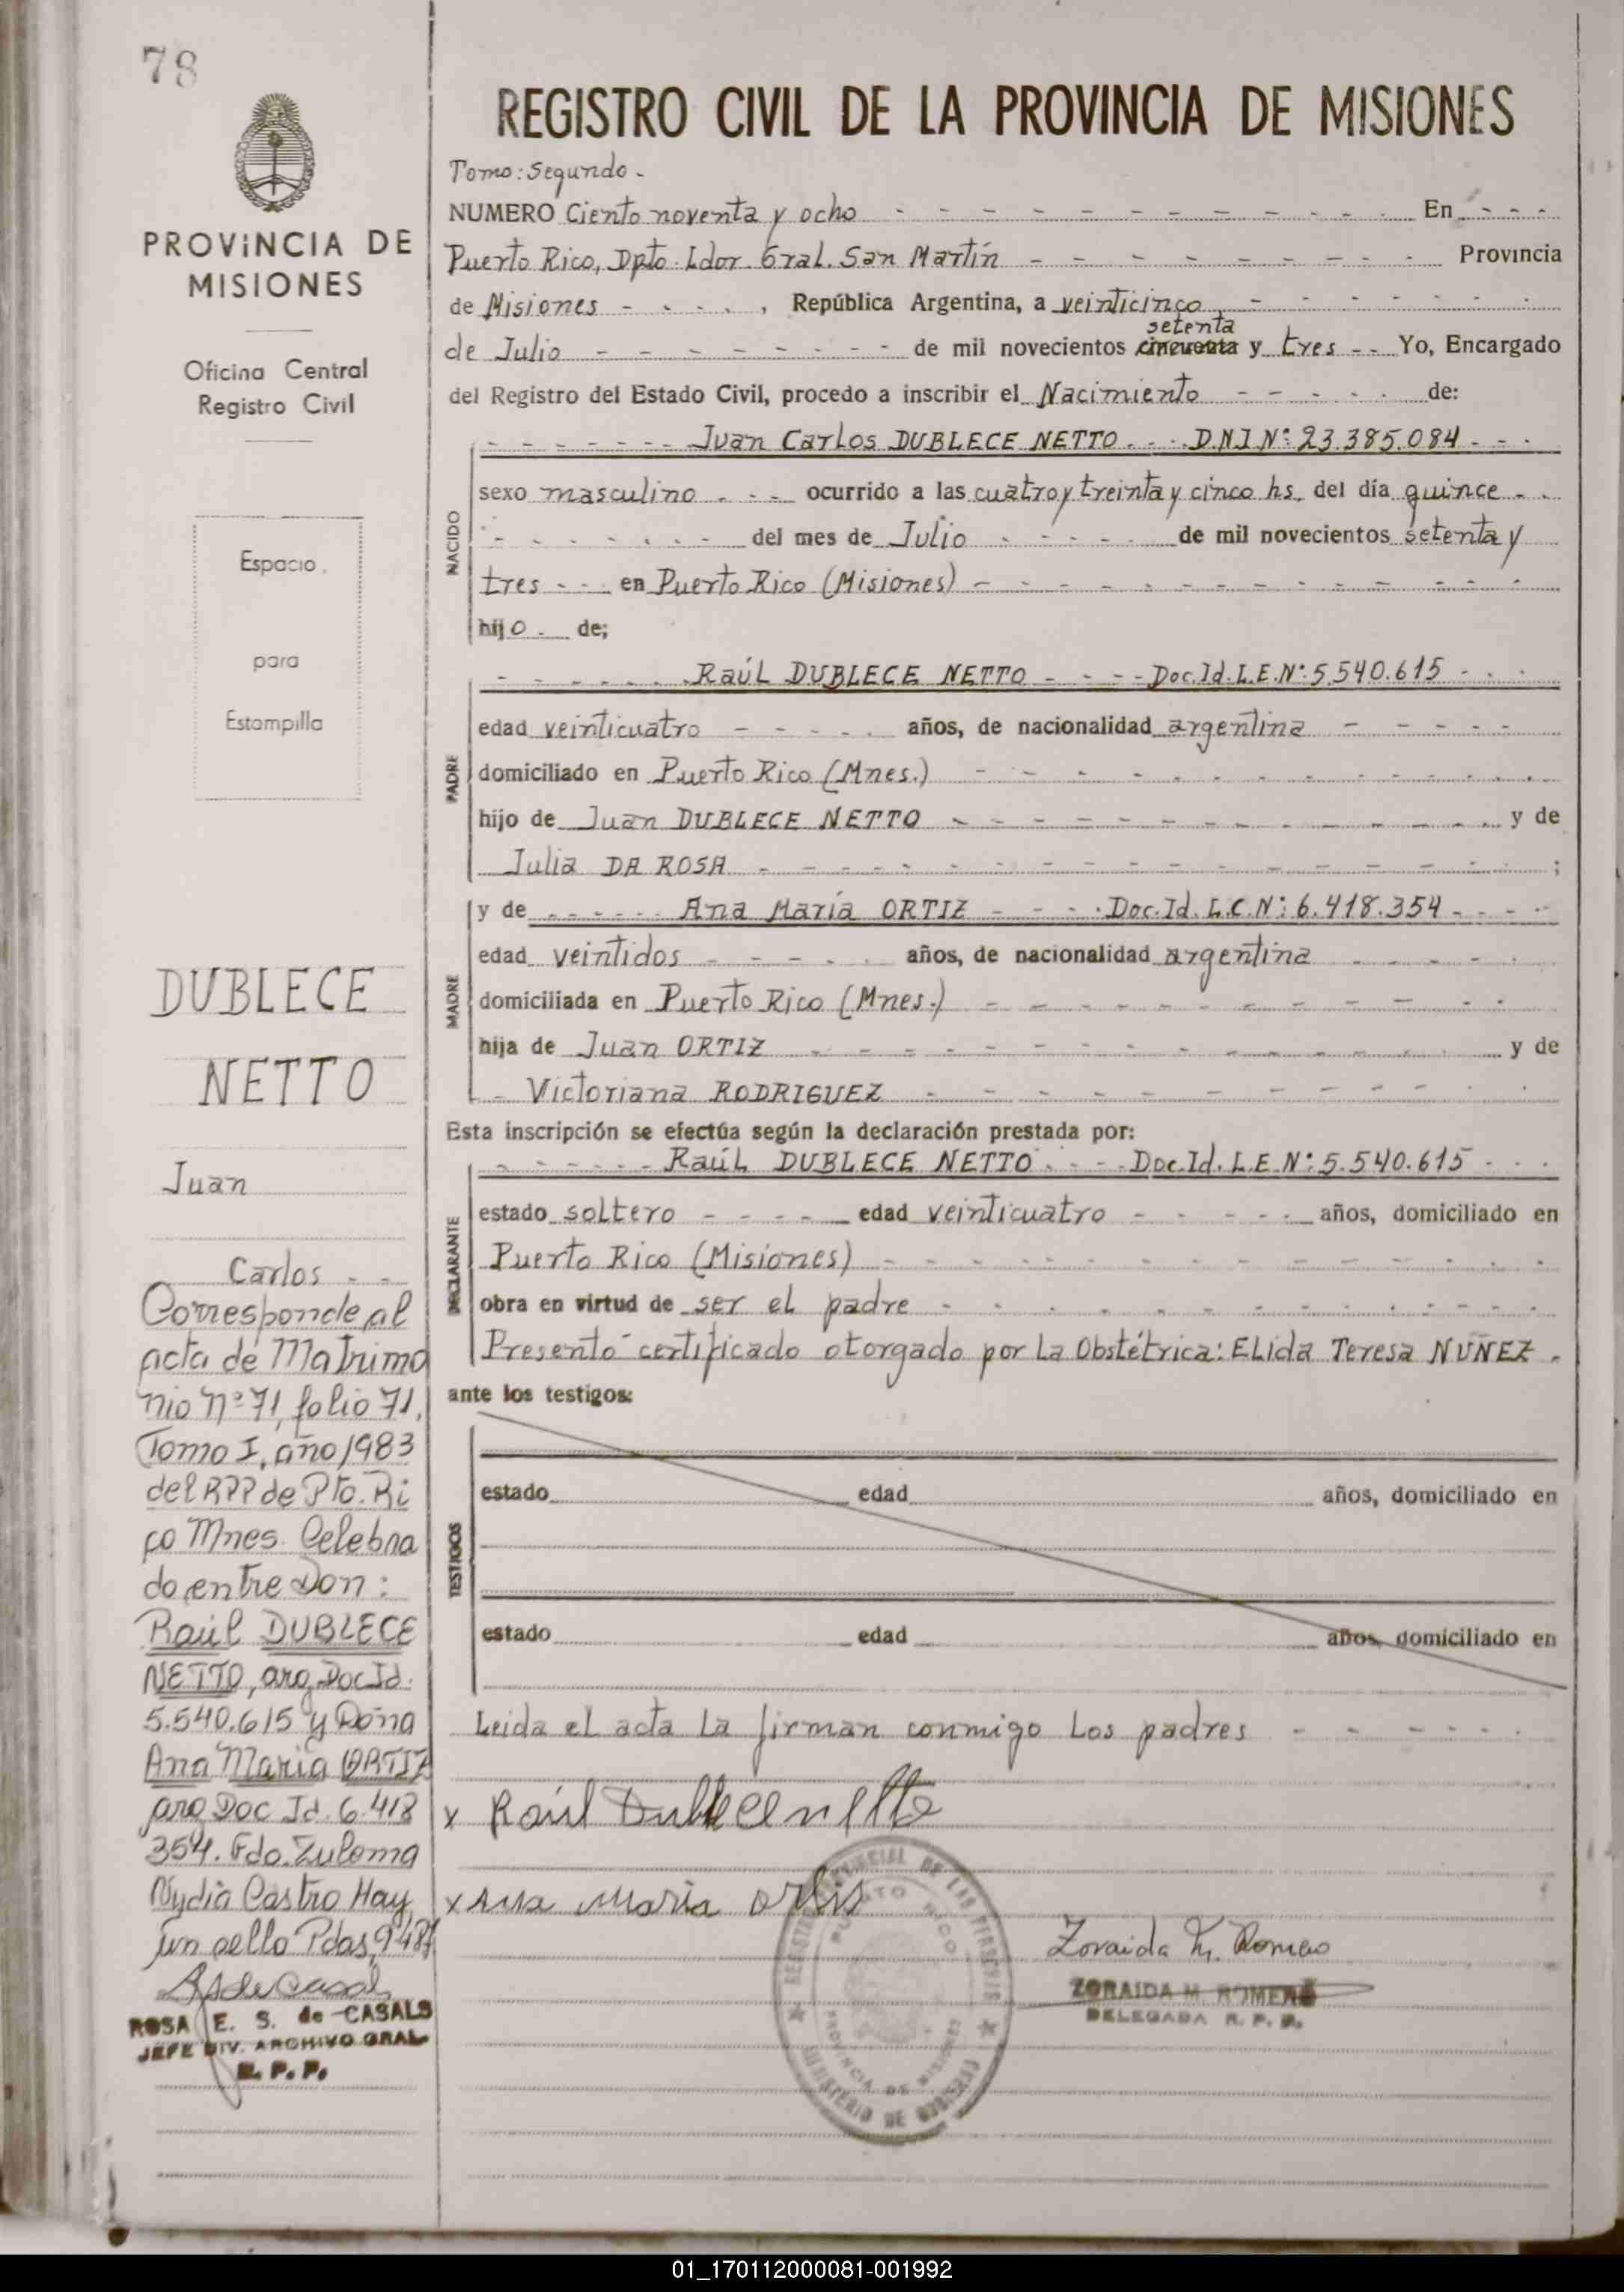 78
PROVINCIA DE
MISIONES
Oficina Central
Registro Civil
Espacio
para
Estampilla
DUBLECE
NETTO
Juan
Carlos
Corresponde al
acta de Matrimo
nio nº 71, folio 71,
Tomo I, año 1983
del RPP de Pto. Ri
co Mnes. Celebra
do entre Don:
Raúl DUBLECE
NETTO, arg. Doc Id.
5.540.615 y Doña
Ana Maria ORTIZ
arg Doc Id. 6.418
354. Fdo. Zulema
Nydia Castro Hay
un sello Pdas, 9487
ROSA E. S. de CASALS
JEFE DIV. ARCHIVO GRAL
R. P. P.
REGISTRO CIVIL DE LA PROVINCIA DE MISIONES
Tomo: Segundo -
NUMERO Ciento noventa y ocho En
Puerto Rico, Dpto. Ldor. Gral. San Martín Provincia
de Misiones , República Argentina, a veinticinco
setenta
de Julio de mil novecientos cincuenta y tres Yo, Encargado
del Registro del Estado Civil, procedo a inscribir el Nacimiento de:
Juan Carlos DUBLECE NETTO D.N.I Nº: 23.385.084
NACIDO
sexo masculino ocurrido a las cuatro y treinta y cinco hs. del día quince
del mes de Julio de mil novecientos setenta y
tres en Puerto Rico (Misiones)
hijo de;
Raúl DUBLECE NETTO Doc. Id. L.E. Nº: 5.540.615
PADRE
edad veinticuatro años, de nacionalidad argentina
domiciliado en Puerto Rico (Mnes.)
hijo de Juan DUBLECE NETTO y de
Julia DA ROSA ;
y de Ana María ORTIZ Doc. Id. L.C. Nº: 6.418.354
MADRE
edad veintidos años, de nacionalidad argentina
domiciliada en Puerto Rico (Mnes.)
hija de Juan ORTIZ y de
Victoriana RODRIGUEZ
Esta inscripción se efectúa según la declaración prestada por:
Raúl DUBLECE NETTO Doc. Id. L.E. Nº: 5.540.615
DECLARANTE
estado soltero edad veinticuatro años, domiciliado en
Puerto Rico (Misiones)
obra en virtud de ser el padre
Presentó certificado otorgado por la Obstétrica: Elida Teresa NUÑEZ.
ante los testigos:
TESTIGOS
estado edad años, domiciliado en
estado edad años, domiciliado en
Leida el acta la firman conmigo los padres
x Raúl Dublece netto
x Ana Maria Ortis
REGISTRO PROVINCIAL DE LAS PERSONAS
PUERTO RICO
PROVINCIA DE MISIONES
MINISTERIO DE GOBIERNO
Zoraida M. Romero
ZORAIDA M. ROMERO
DELEGADA R. P. P.
01_170112000081-001992